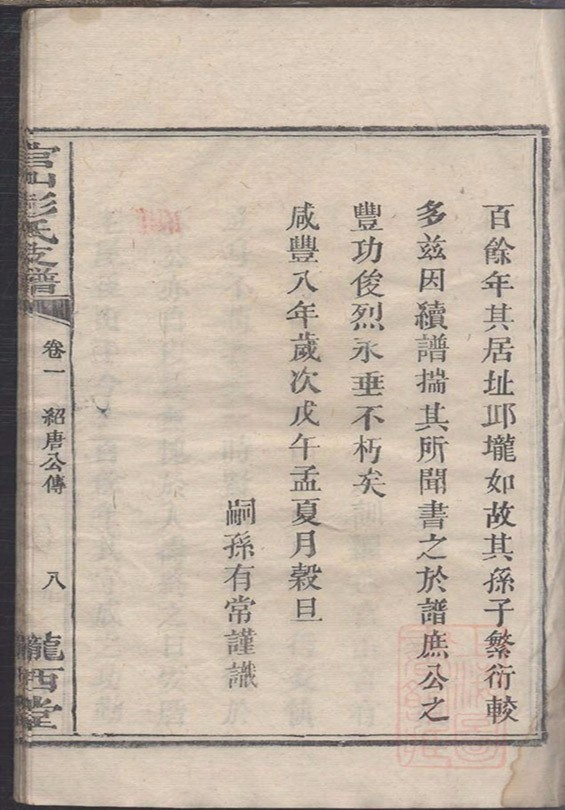 百餘年其居址邱壠如故其孫子繁衍較
多兹因續譜揣其所聞書之於譜庶公之
豐功俊烈永垂不朽矣
咸豐八年歲次戊午孟夏月穀旦
嗣孫有常謹識
官山彭氏支譜
卷一
紹唐公傳
八
隴西堂